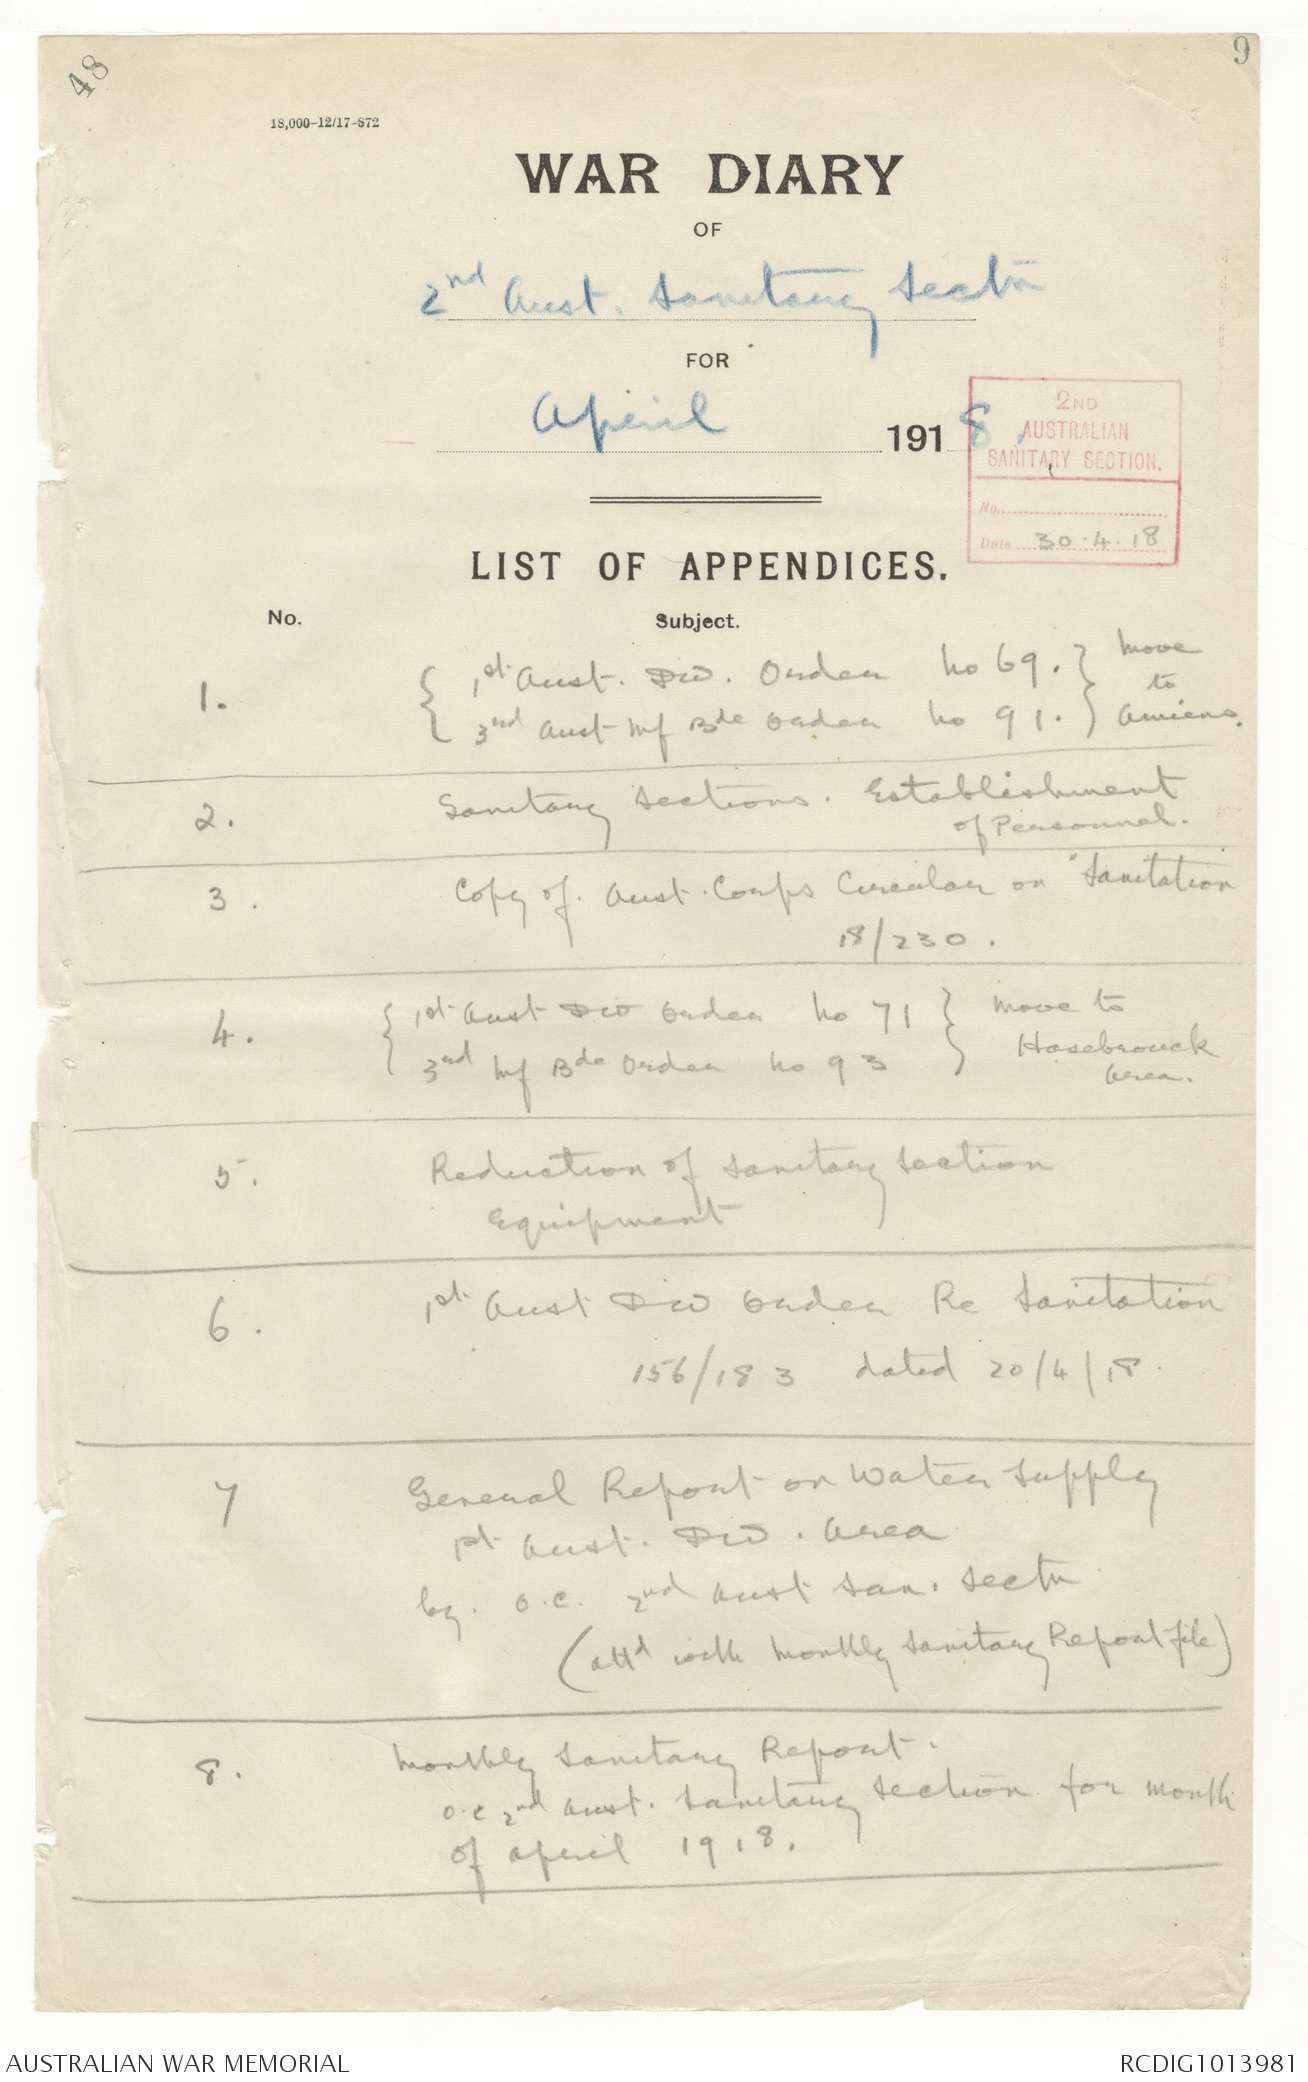 48
9
18,000-12/17-872
WAR DIARY
OF
2nd Aust. Sanitary Sectn
FOR
April 1918.
2ND
AUSTRALIAN
SANITARY SECTION.
No.
Date 30.4.18
LIST OF APPENDICES.
No. Subject.
1. { 1st Aust. Div. Order No 69. } Move
3rd Aust Inf Bde Order No 91. } to
Amiens.
2. Sanitary Sections. Establishment
of Personnel.
3. Copy of. Aust. Corps Circular on "Sanitation
18/230.
4. { 1st Aust Div Order No 71 } Move to
3rd Inf Bde Order No 93 } Hasebrouck
Area.
5. Reduction of Sanitary Section
Equipment
6. 1st Aust Div Order Re Sanitation
156/183 dated 20/4/18.
7 General Report on Water Supply
1st Aust. Div. Area
by. O.C. 2nd Aust San. Sectn
(attd with Monthly Sanitary Report file)
8. Monthly Sanitary Report.
O.C 2nd Aust. Sanitary Section for month
of April 1918.
AUSTRALIAN WAR MEMORIAL RCDIG1013981